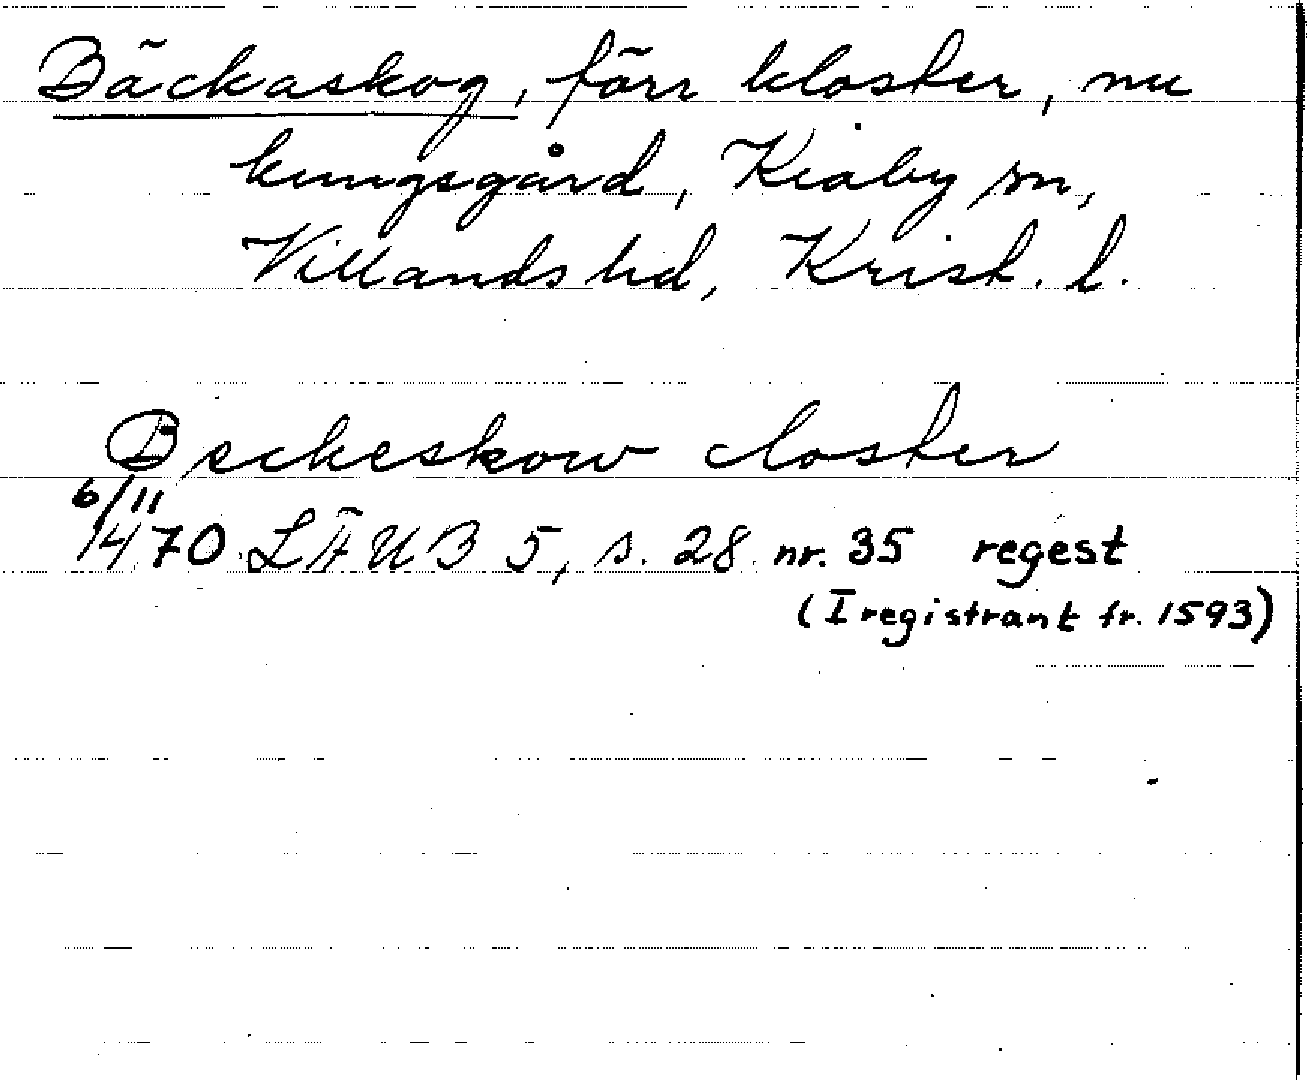 Bäckaskog, förr kloster, nu
kungsgård, Kiaby sn,
Villands hd, Krist. l.
Beckeskow closter
6/11
1470 LÄUB 5, s. 28 nr. 35 regest
(I registrant fr. 1593)